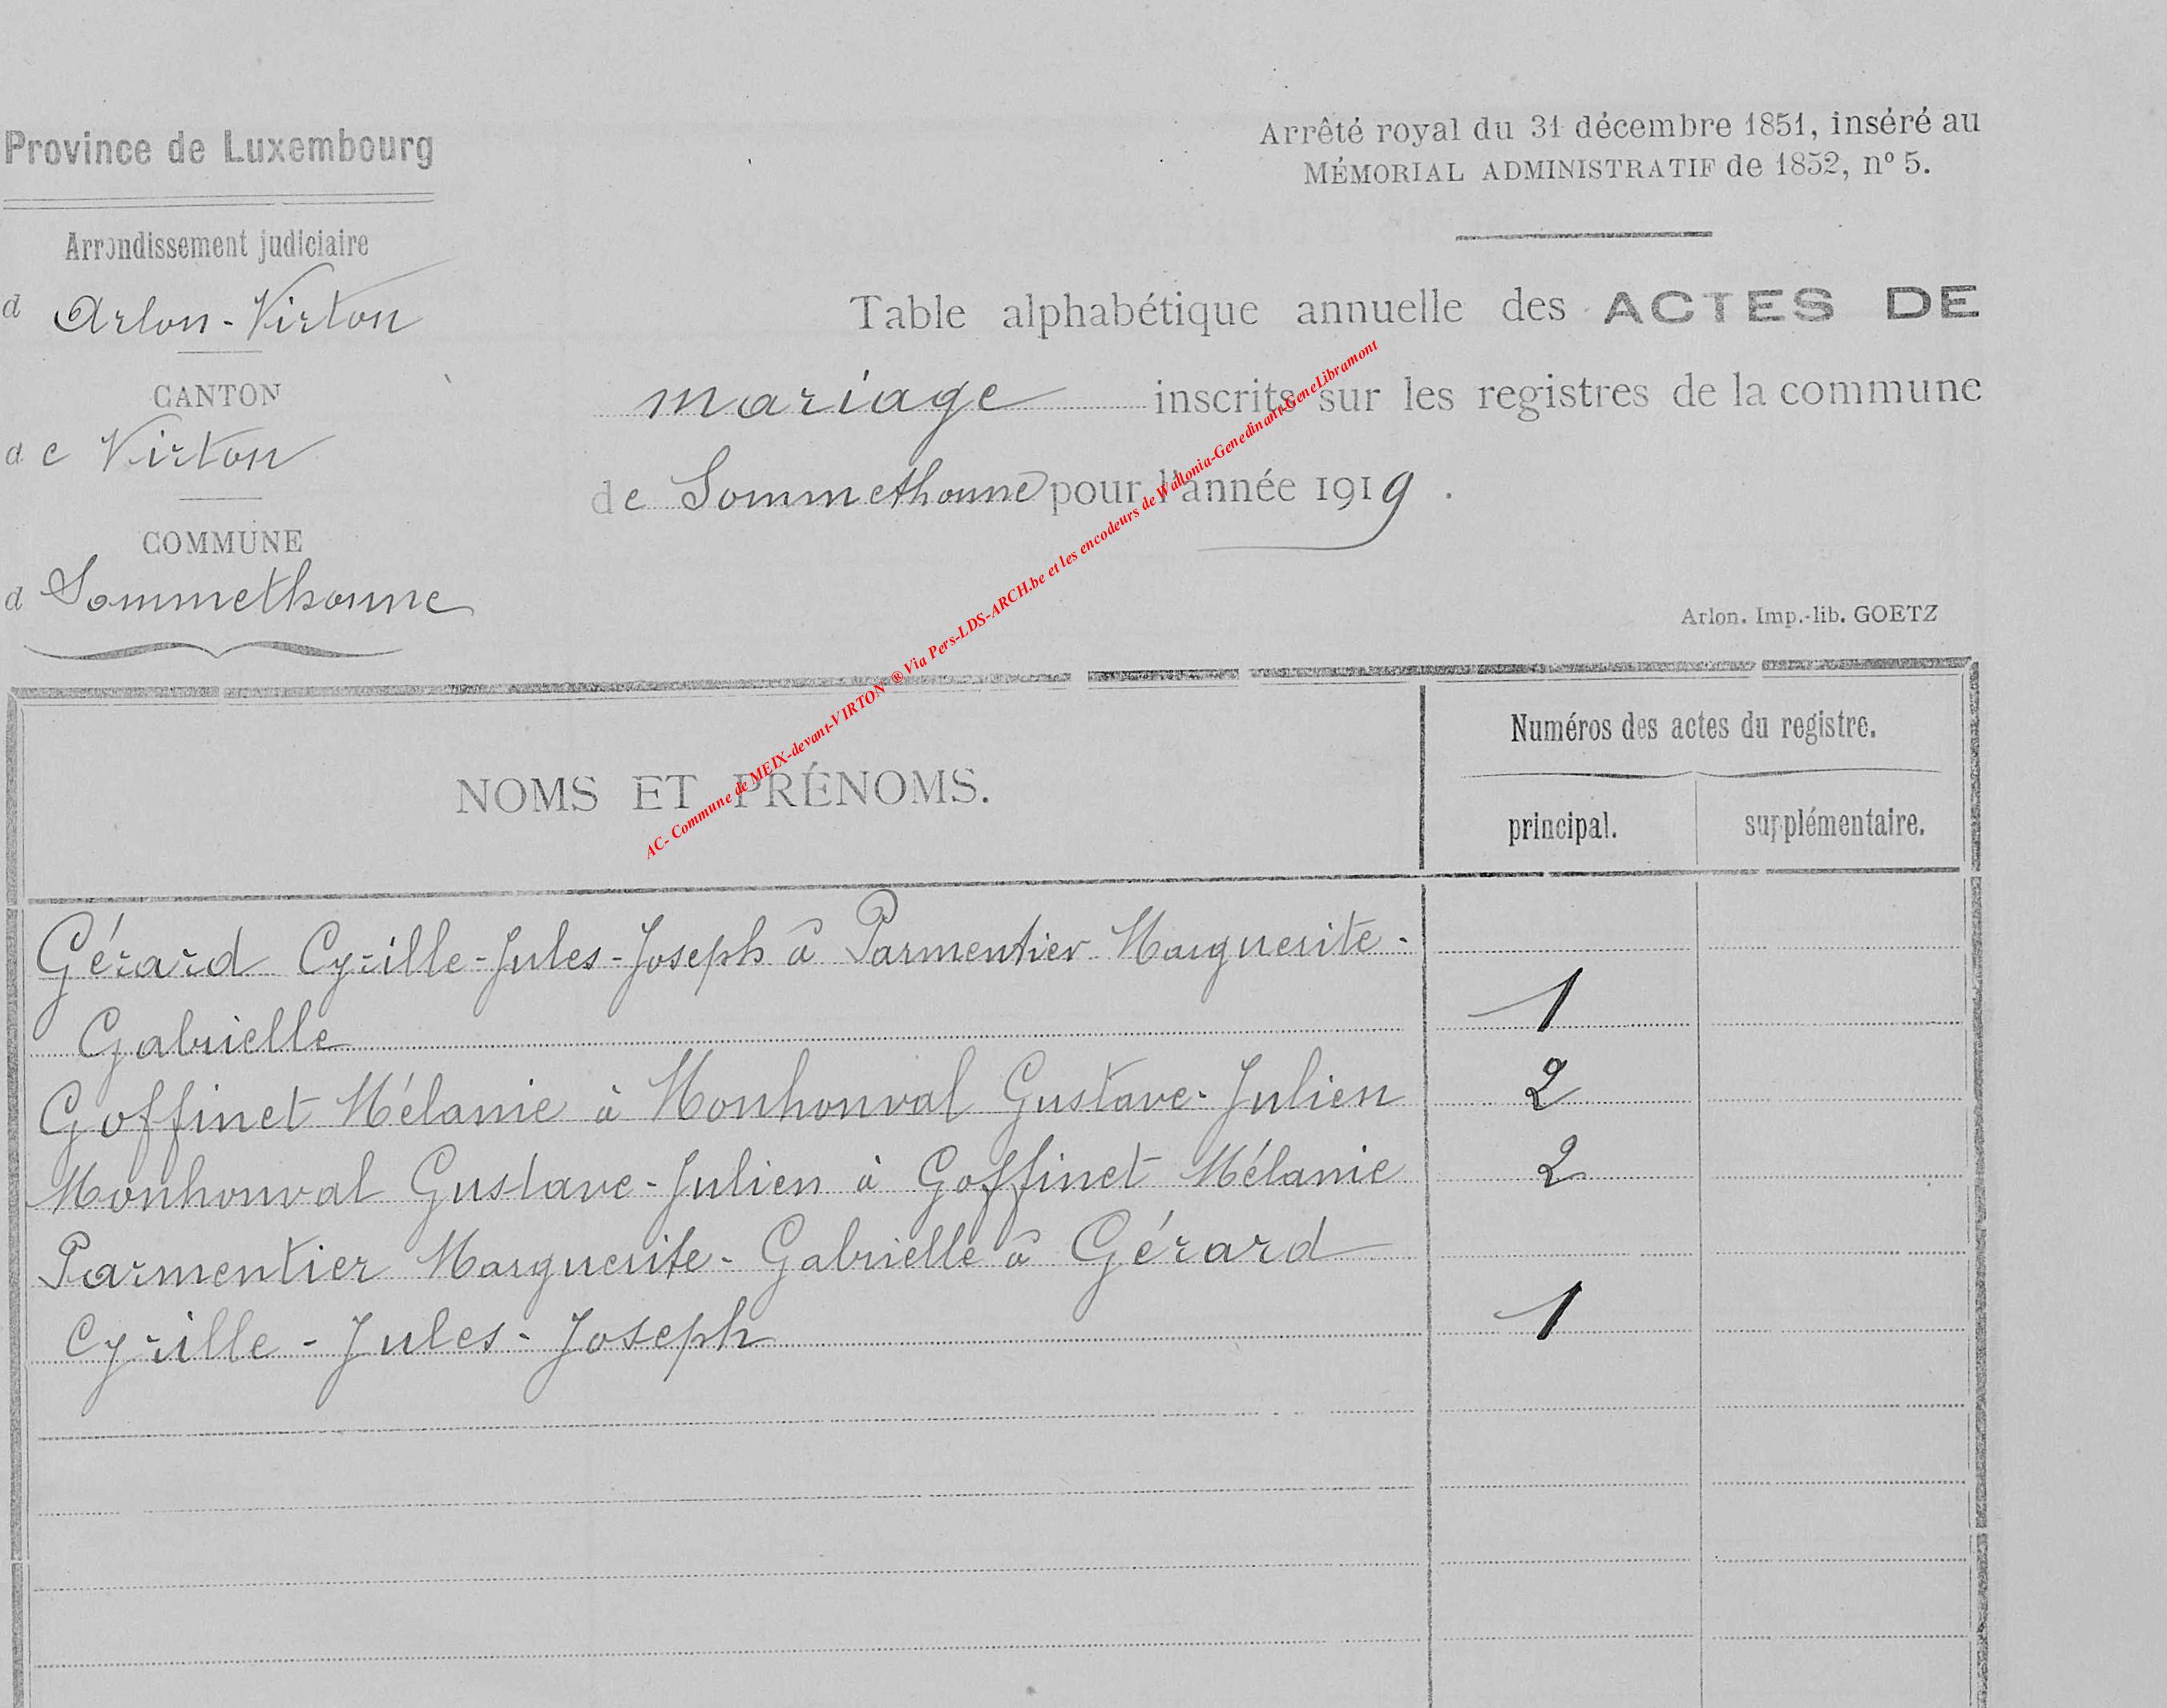 Province de Luxembourg
Arrondissement judiciaire
d Arlon-Virton
CANTON
de Virton
COMMUNE
d Sommethonne
Arrêté royal du 31 décembre 1851, inséré au
MÉMORIAL ADMINISTRATIF de 1852, nº 5.
Table alphabétique annuelle des ACTES DE
mariage inscrits sur les registres de la commune
de Sommethonne pour l'année 1919.
Arlon. Imp.-lib. GOETZ
AC- Commune de MEIX-devant-VIRTON ® Via Pers-LDS-ARCH.be et les encodeurs de Wallonia-Genedinant-GeneLibramont
NOMS ET PRÉNOMS.
Numéros des actes du registre.
principal. supplémentaire.
Gérard Cyrille-Jules-Joseph à Parmentier Marguerite-
Gabrielle 1
Goffinet Mélanie à Monhonval Gustave-Julien 2
Monhonval Gustave-Julien à Goffinet Mélanie 2
Parmentier Marguerite-Gabrielle à Gérard
Cyrille-Jules-Joseph 1